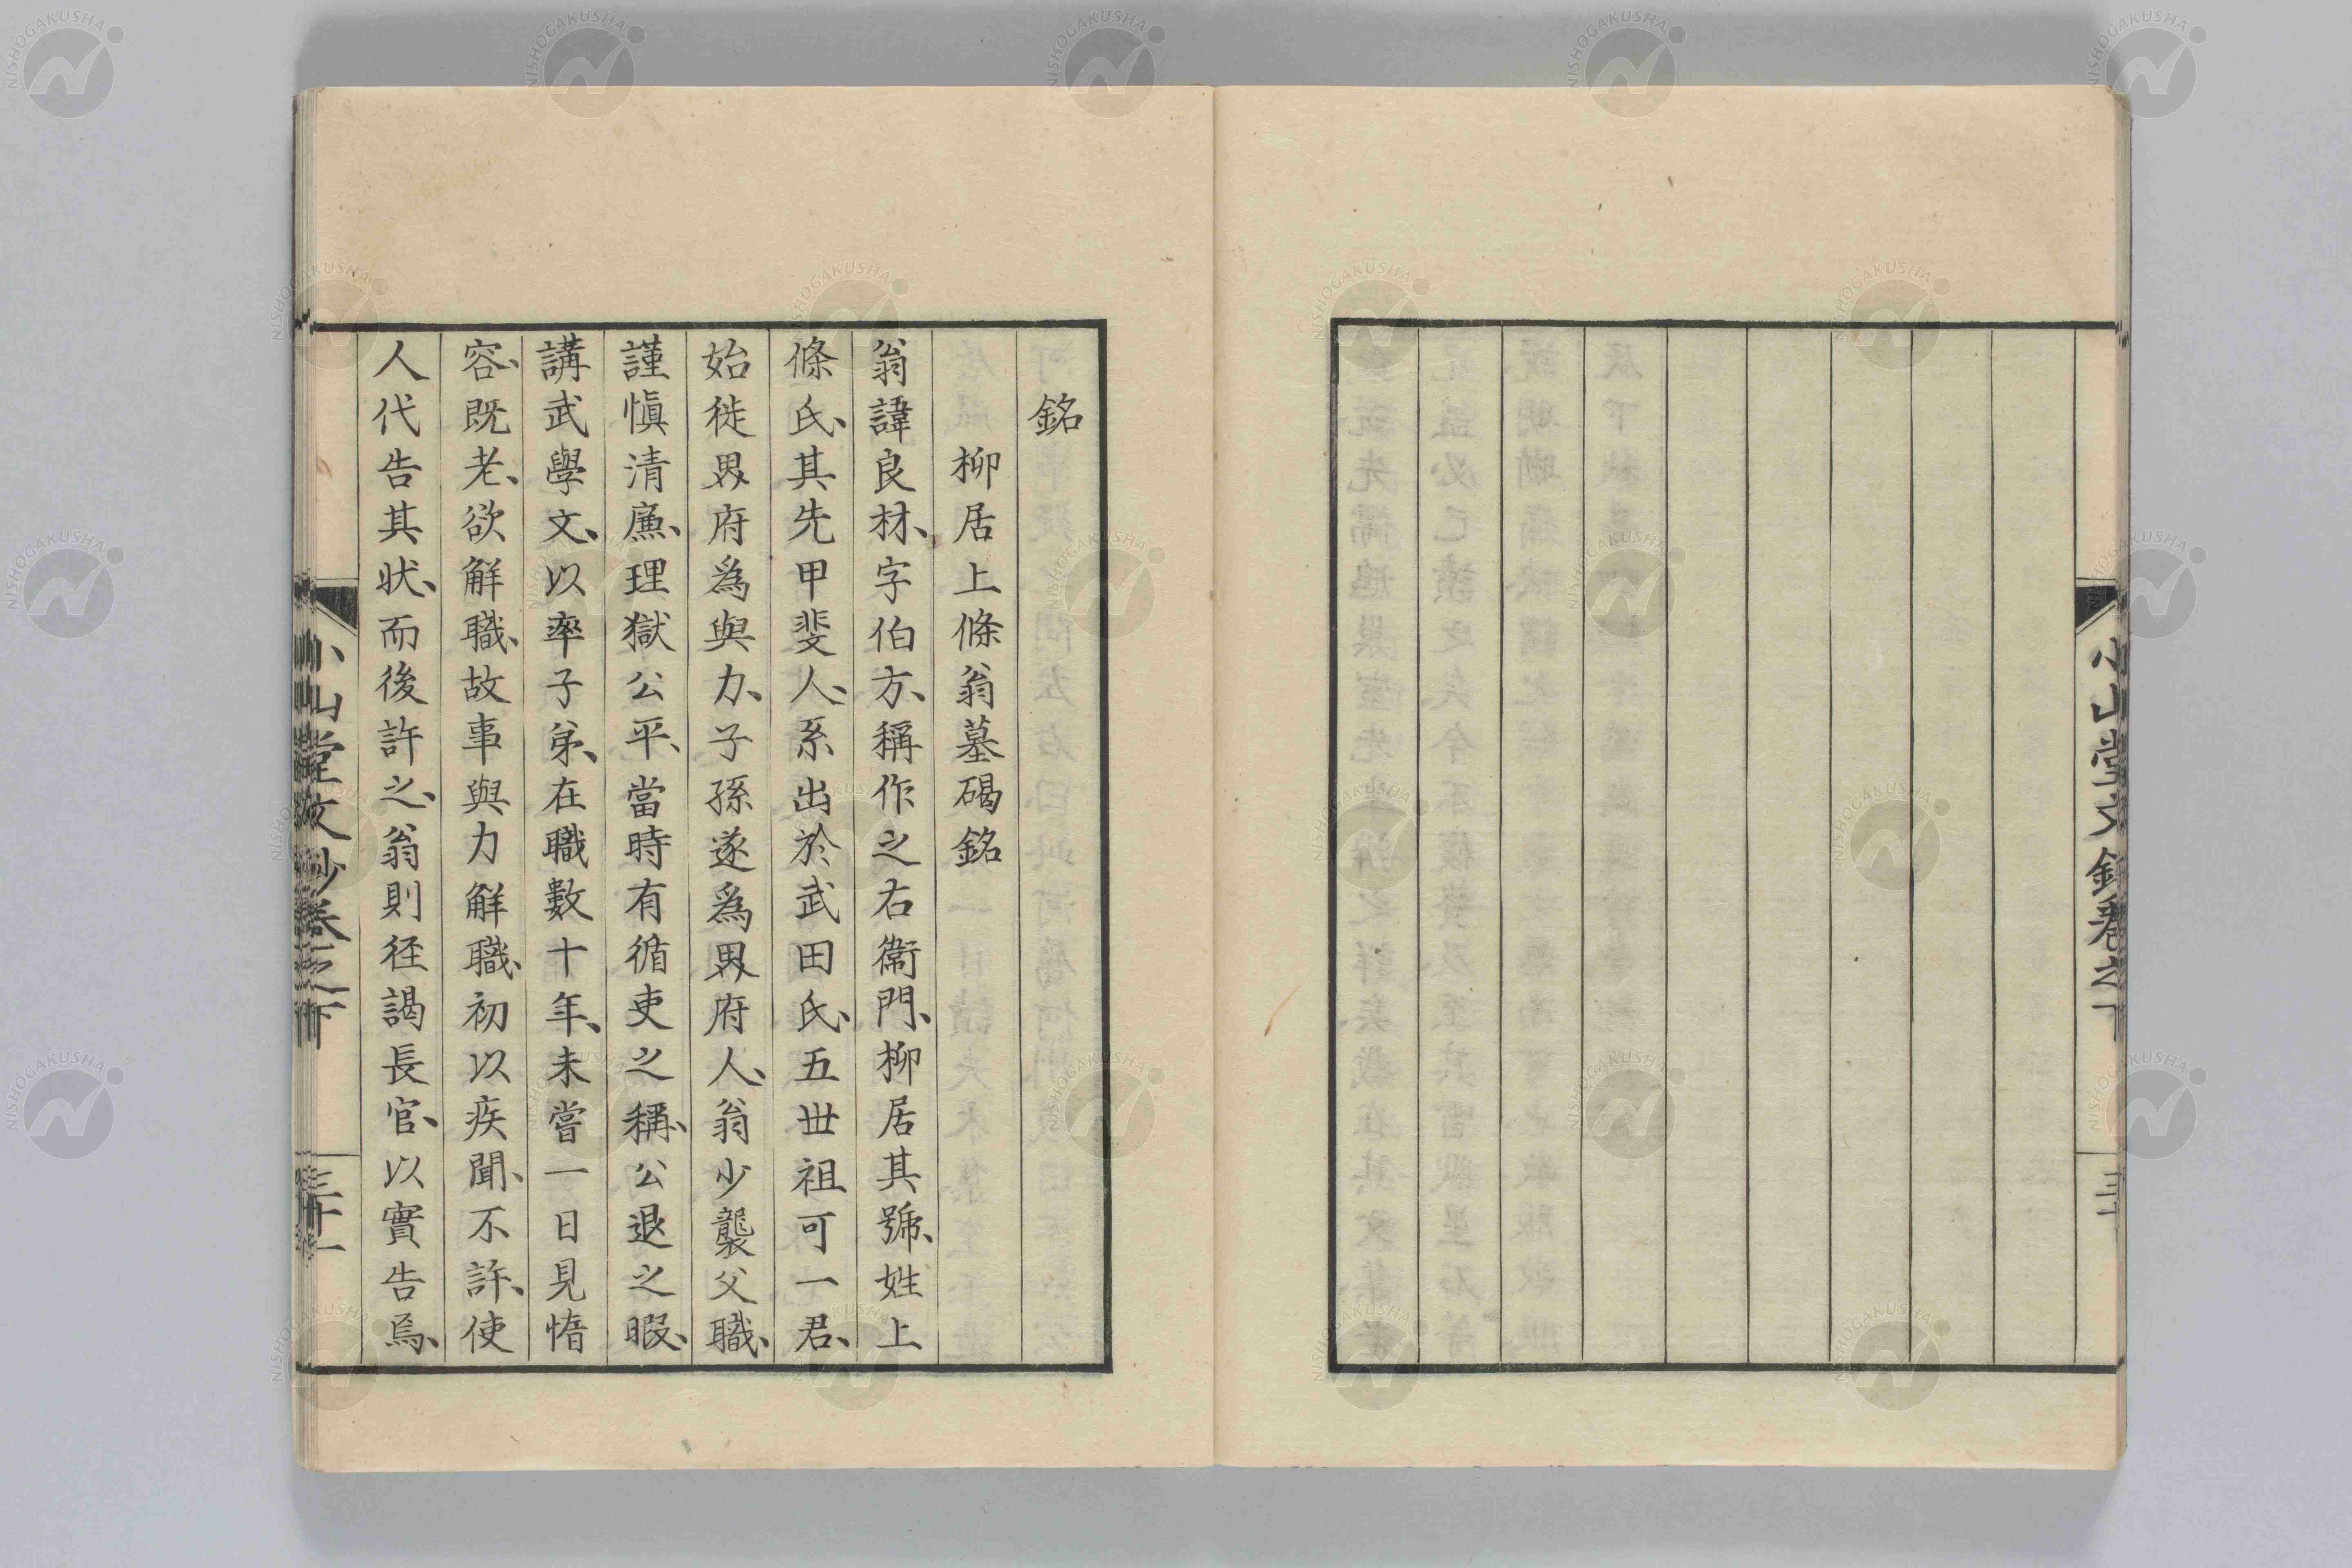 小山堂文鈔卷之下
銘
柳居上條翁墓碣銘
翁諱良材、字伯方、稱作之右衞門、柳居其號、姓上
條氏、其先甲斐人、系出於武田氏、五世祖可一君、
始徙界府爲與力、子孫遂爲界府人、翁少襲父職、
謹愼清廉、理獄公平、當時有循吏之稱、公退之暇、
講武學文、以率子弟、在職數十年、未嘗一日見惰
容、既老、欲解職、故事與力解職、初以疾聞、不許、使
人代告其狀、而後許之、翁則徑謁長官、以實告焉、
小山堂文鈔卷之下
三十一
NISHOGAKUSHA